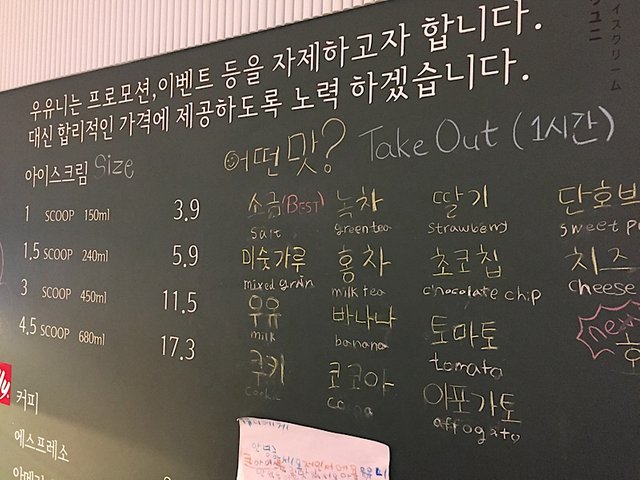 우유니는 프로모션,이벤트 등을 자제하고자 합니다.
대신 합리적인 가격에 제공하도록 노력 하겠습니다.
아이스크림 Size
어떤맛? Take Out (1시간)
1 SCOOP 150ml 3.9
1.5 SCOOP 240ml 5.9
3 SCOOP 450ml 11.5
4.5 SCOOP 680ml 17.3
소금(BEST) 녹차 딸기 단호박
salt greentea strawberry sweet
미숫가루 홍차 초코칩 치즈
mixed grain milk tea chocolate chip cheese
우유 바나나 토마토
milk banana tomato
쿠키 코코아 아포가토
cookie cocoa affogato
new
커피
에스프레소
イスクリーム
ユニ
안녕